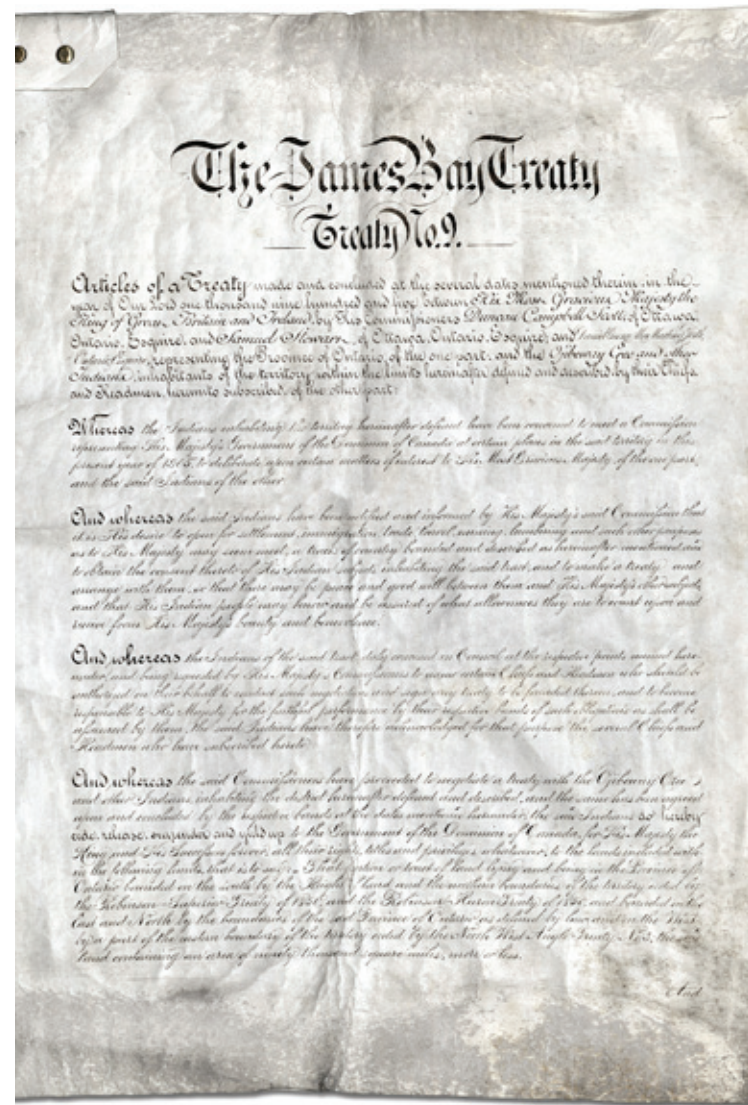 The James Bay Treaty
Treaty No. 9.
Articles of a Treaty made and concluded at the several dates mentioned therein, in the
year of Our Lord one thousand nine hundred and five between His Most Gracious Majesty the
King of Great Britain and Ireland, by His Commissioners Duncan Campbell Scott, of Ottawa,
Ontario, Esquire, and Samuel Stewart, of Ottawa, Ontario, Esquire, and
representing the Province of Ontario, of the one part, and the Ojibeway Cree and other
Indians, inhabitants of the territory within the limits hereinafter defined and described, by their Chiefs
and Headmen, hereunto subscribed, of the other part:
Whereas the Indians inhabiting the territory hereinafter defined have been convened to meet a Commission
representing His Majesty's Government of the Dominion of Canada at certain places in the said territory in this
present year of 1905, to deliberate upon certain matters of interest to His Most Gracious Majesty, of the one part,
and the said Indians of the other
And whereas the said Indians have been notified and informed by His Majesty's said Commission that
it is His desire to open for settlement, immigration, trade, travel, mining, lumbering and such other purposes
as to His Majesty may seem meet, a tract of country bounded and described as hereinafter mentioned and
to obtain the consent thereto of His Indian subjects inhabiting the said tract, and to make a treaty and
arrange with them, so that there may be peace and good will between them and His Majesty's other subjects,
and that His Indian people may know and be assured of what allowances they are to count upon and
receive from His Majesty's bounty and benevolence.
And whereas the Indians of the said tract, duly convened in Council at the respective points named here
under, and being requested by His Majesty's Commissioners to name certain Chiefs and Headmen who should be
authorized on their behalf to conduct such negotiations and sign any treaty to be founded thereon, and to become
responsible to His Majesty for the faithful performance by their respective bands of such obligations as shall be
assumed by them, the said Indians have therefore acknowledged for that purpose the several Chiefs and
Headmen who have subscribed hereto.
And whereas the said Commissioners have proceeded to negotiate a treaty with the Ojibeway Cree
and other Indians, inhabiting the district hereinafter defined and described, and the same has been agreed
upon and concluded by the respective bands at the dates mentioned hereunder, the said Indians do hereby
cede, release, surrender and yield up to the Government of the Dominion of Canada, for His Majesty the
King and His Successors forever, all their rights, titles and privileges whatsoever, to the lands included with
in the following limits, that is to say: That portion or tract of land lying and being in the Province of
Ontario bounded on the south by the Height of Land and the northern boundaries of the territory ceded by
the Robinson-Superior Treaty of 1850, and the Robinson-Huron Treaty of 1850, and bounded on the
East and North by the boundaries of the said Province of Ontario as defined by law, and on the West
by a part of the eastern boundary of the territory ceded by the North West Angle Treaty No. 3, the
land containing an area of ninety thousand square miles, more or less.
And